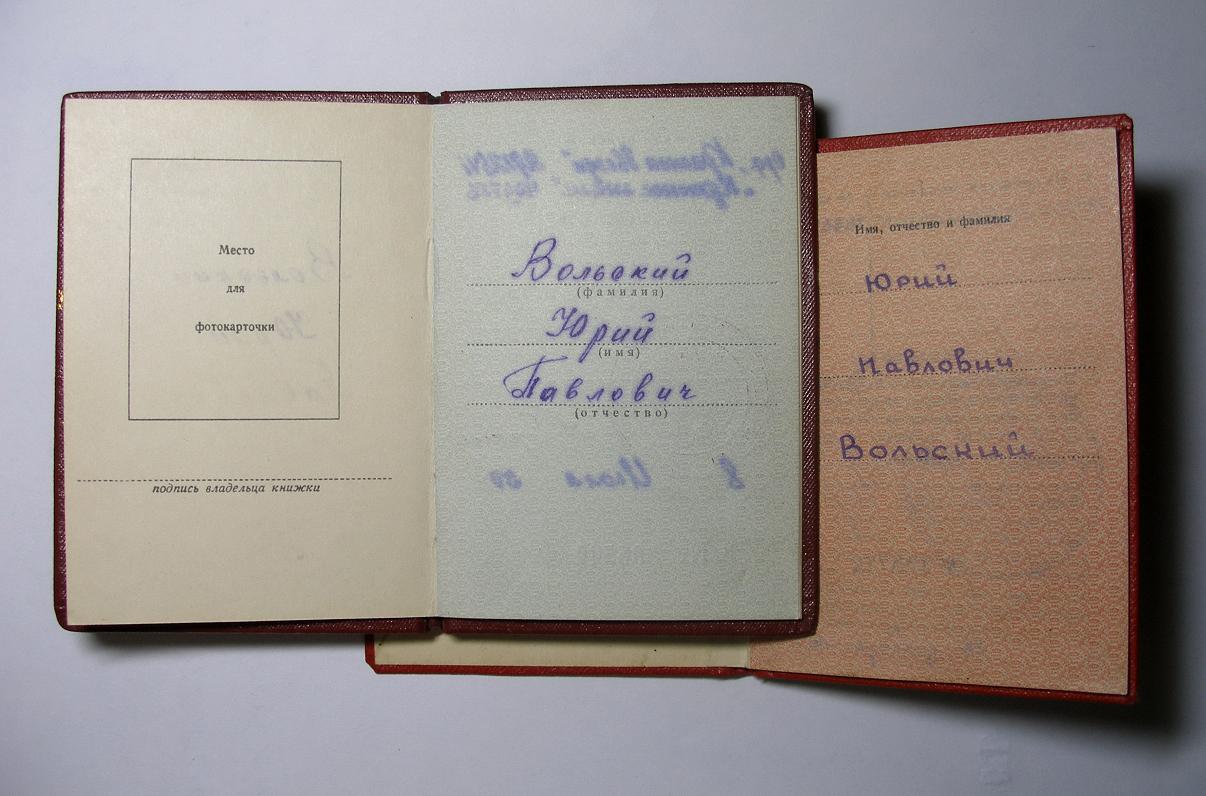 Место
для
фотокарточки
подпись владельца книжки
Вольский
(фамилия)
Юрий
(имя)
Павлович
(отчество)
Имя, отчество и фамилия
Юрий
Павлович
Вольский